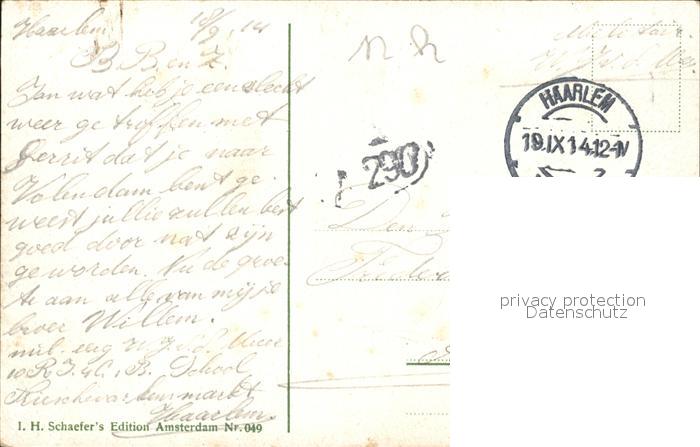 Haarlem 18/9, 14
B. B. en Z.
Jan wat heb je een slecht
weer getroffen met
Gerrit dat je naar
Volendam bent ge-
weest jullie zullen best
goed door nat zijn
geworden. Nu de groe-
te aan alle van mij je
broer Willem.
mil. W. J. v. d. Meer
10 R. I. 4 C. 1 B. School
Haarlem
I. H. Schaefer's Edition Amsterdam Nr. 049
Militair
W. J. v. d. Meer
HAARLEM
19.IX.14.12-1V
290
Den
privacy protection
Datenschutz